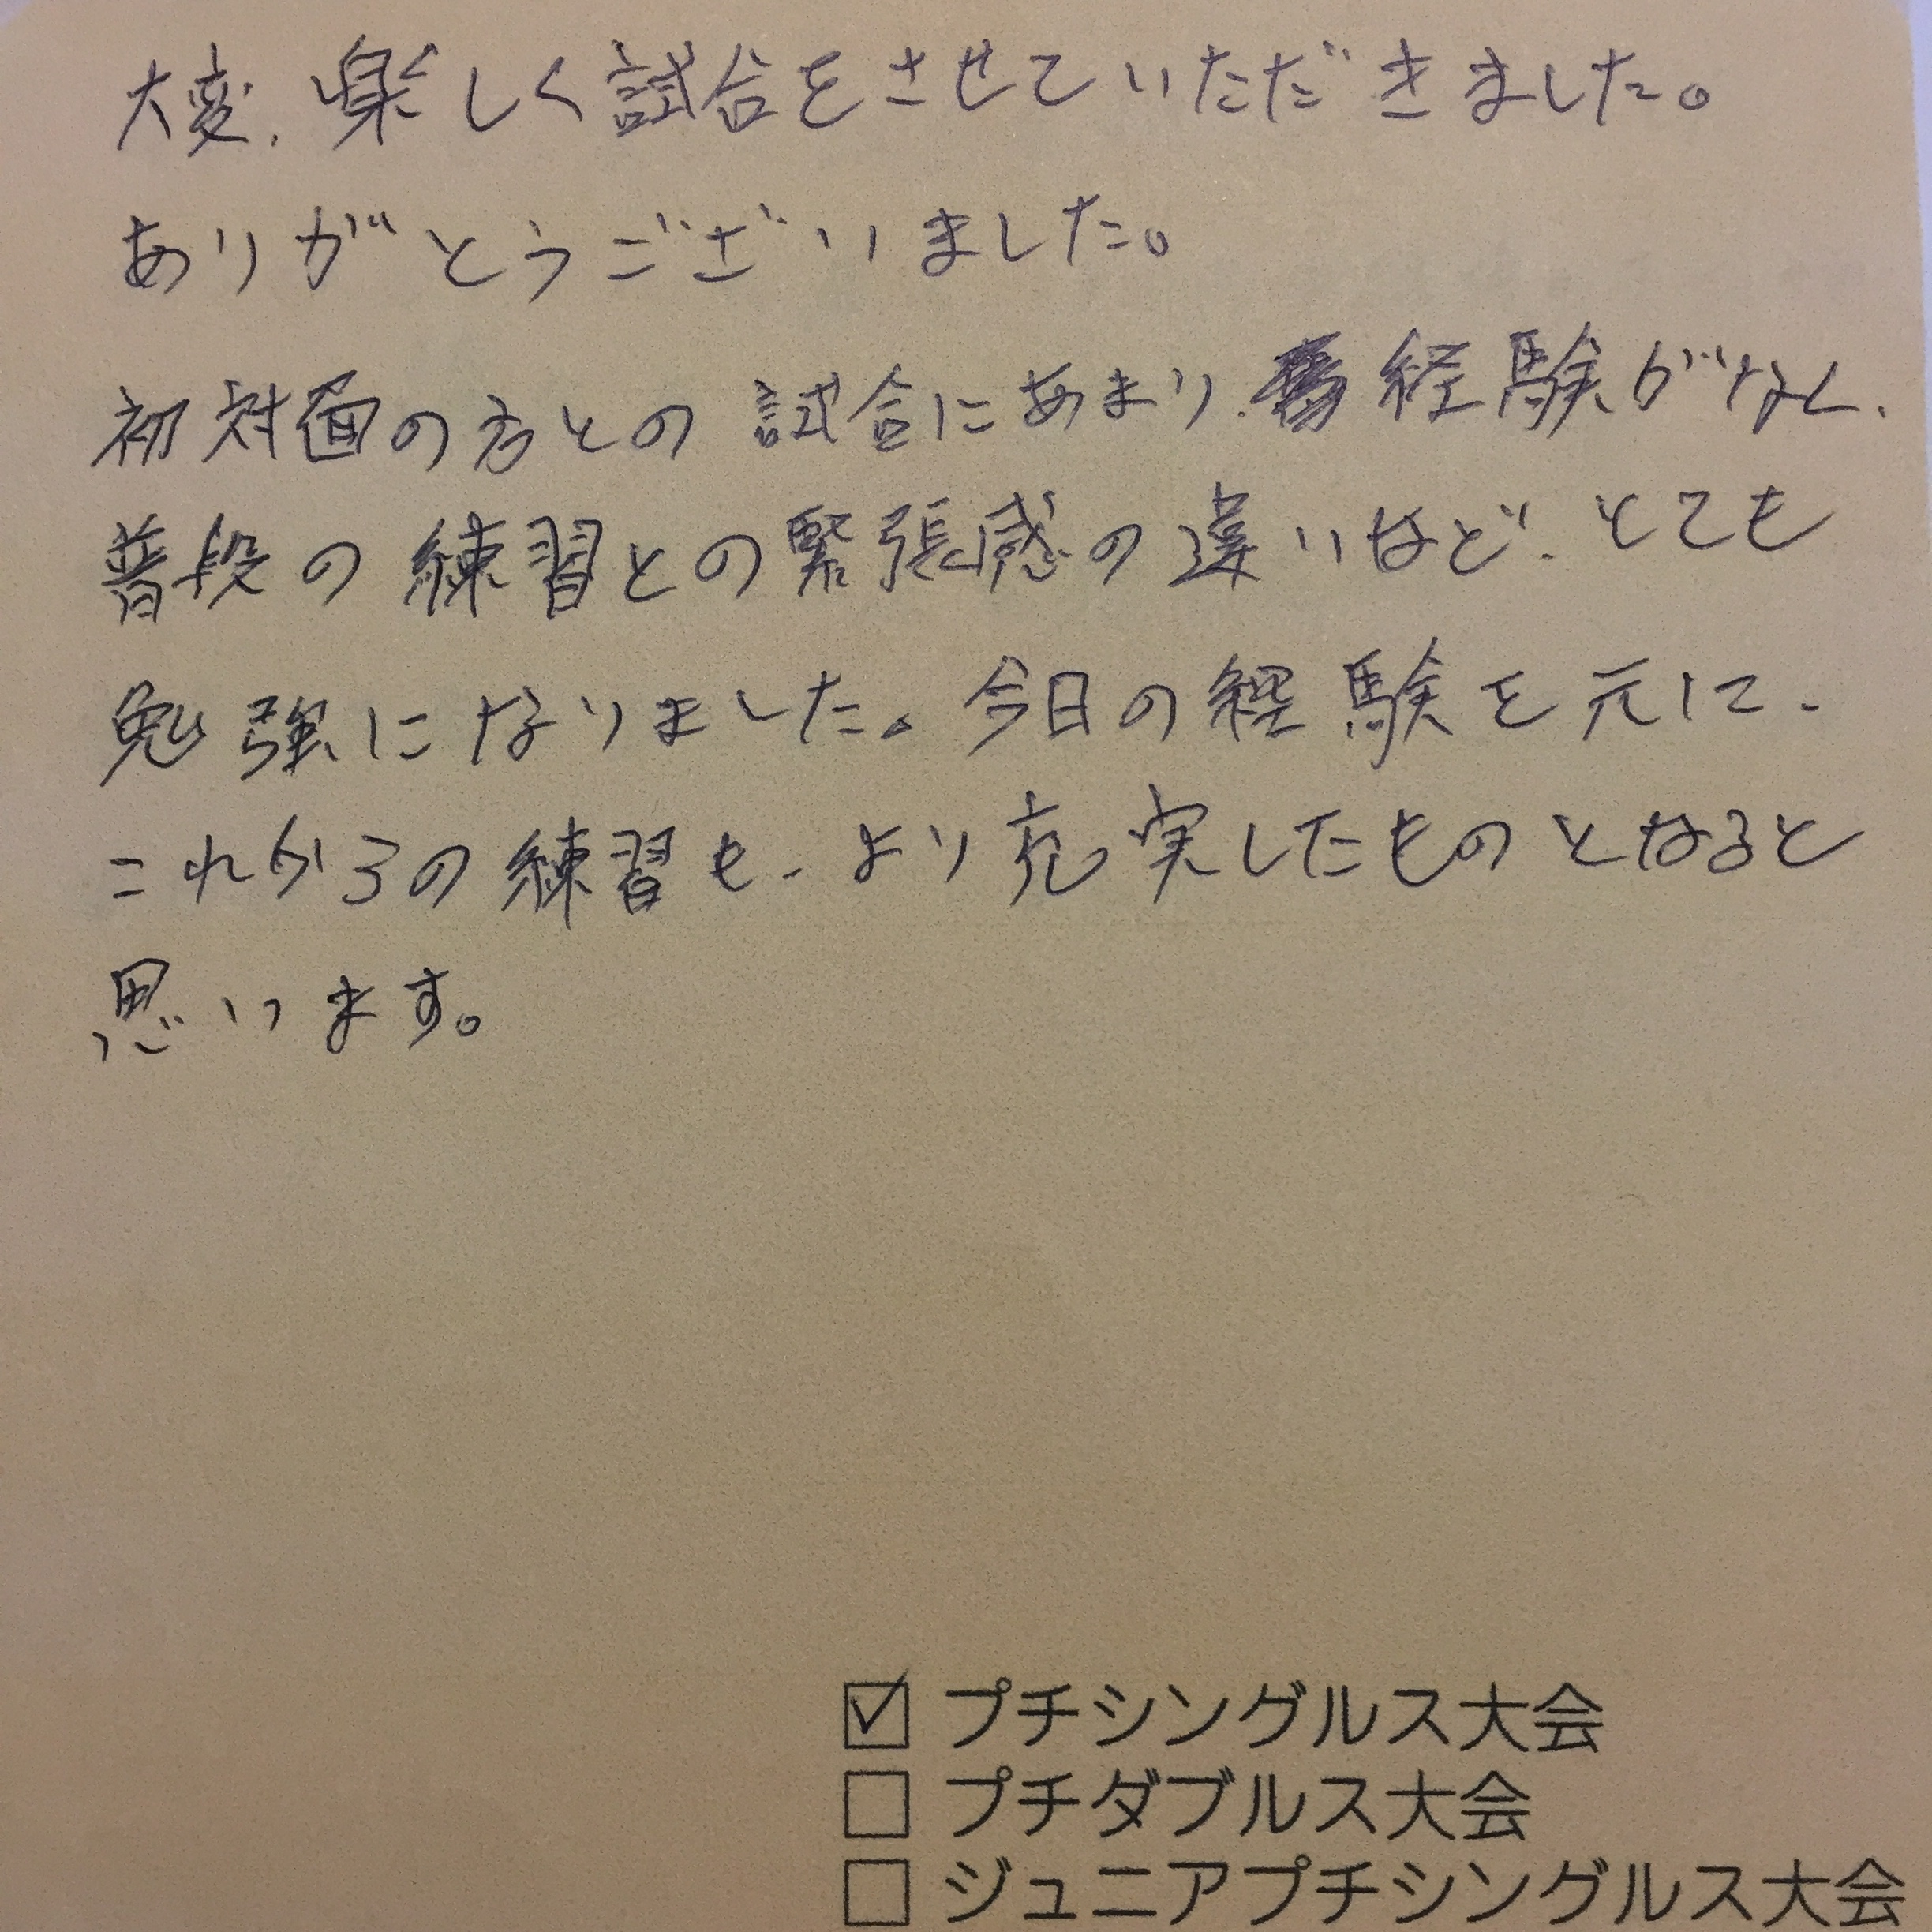 大変、楽しく試合をさせていただきました。
ありがとうございました。
初対面の方との試合にあまり、経験がなく、
普段の練習との緊張感の違いなど、とても
勉強になりました。今日の経験を元に、
これからの練習も、より充実したものとなると
思います。
☑ プチシングルス大会
☐ プチダブルス大会
☐ ジュニアプチシングルス大会